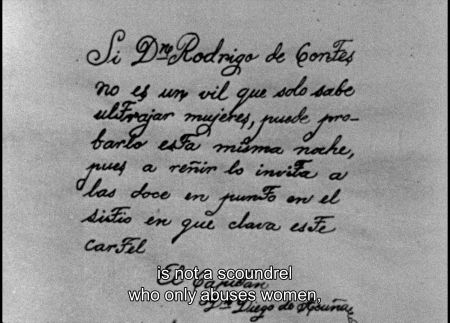 Si Dn Rodrigo de Contes
no es un vil que solo sabe
ultrajar mujeres, puede pro-
barlo esta misma noche,
pues a reñir lo invita a
las doce en punto en el
sitio en que clava este
cartel
El Capitan
is not a scoundrel
who only abuses women,
Dn Diego de Acuña